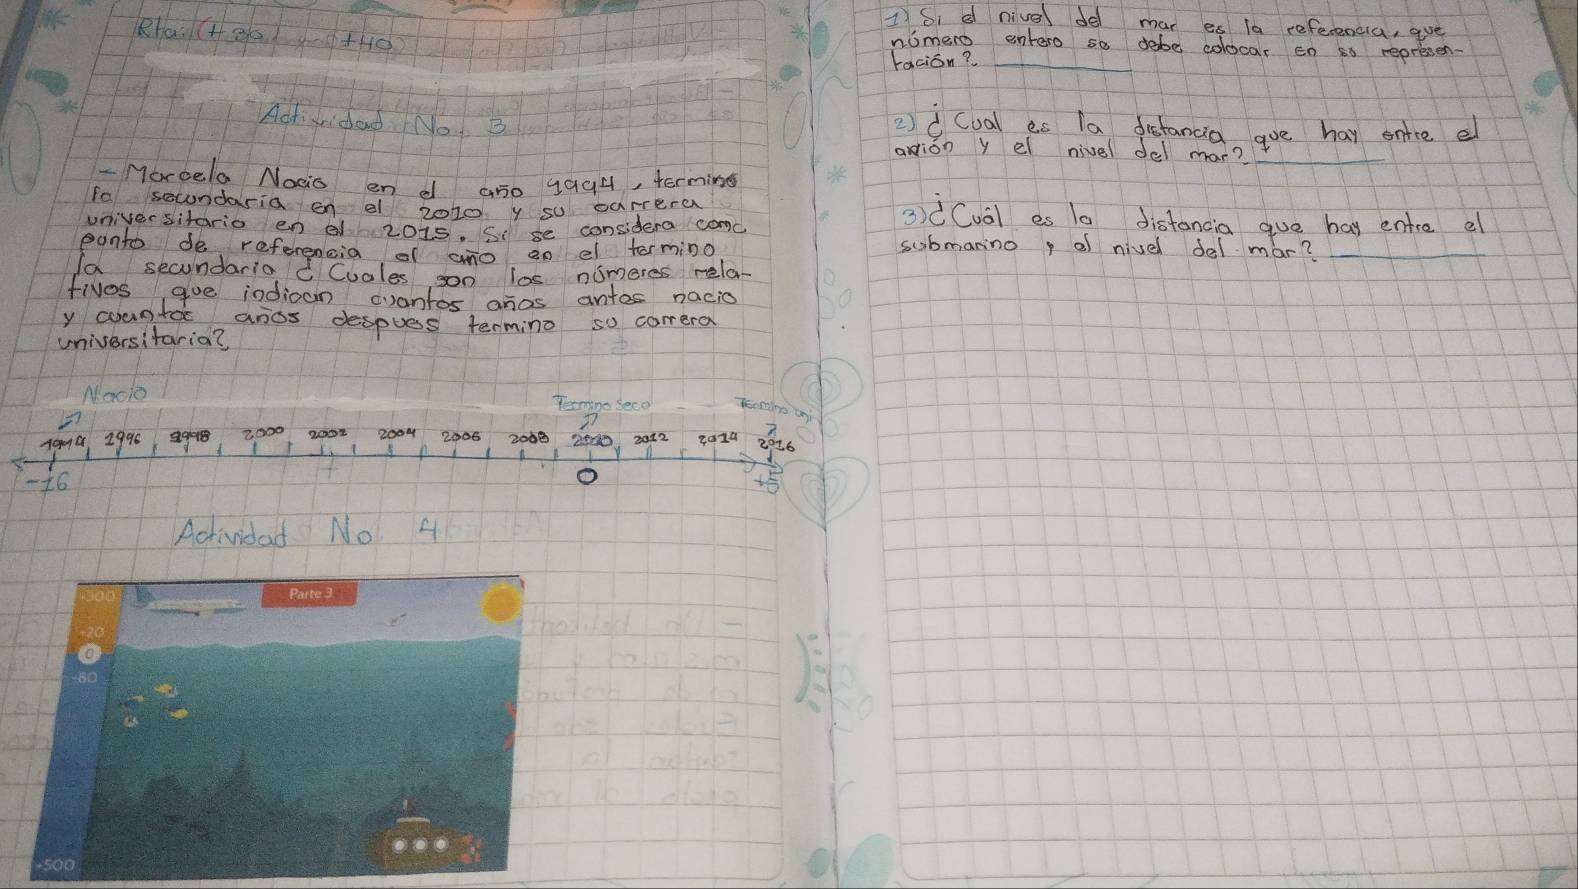 Rta: (+36) +40
Actividad No. 3
- Marcela Nacio en el año 1994, termino
la secundaria en el 2010 y su carrera
universitario en el 2015. Si se considera como
punto de referencia al año en el termino
la secundaria ¿Cuales son los números rela-
tivos que indican cuantos años antes nacio
y cuantos años despues termino su carrera
universitaria?
Nacio Termino seco Termino uni
1994 1996 1998 2000 2002 2004 2006 2008 2010 2012 2014 2016
-16 0
Actividad No 4
+300
Parte 3
+20
0
-80
-500
1) Si el nivel del mar es la referencia, que
número entero se debe colocar en su represen-
tación?
2) ¿Cual es la distancia que hay entre el
avión y el nivel del mar?
3) ¿Cuál es la distancia que hay entre el
submarino y el nivel del mar?